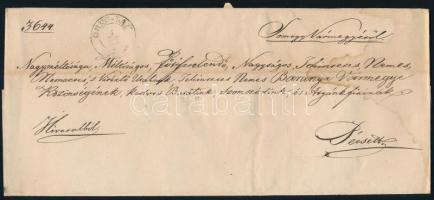 3644.
Somogy Vármegyétől
Nagyméltóságu, Méltóságos, Főtisztelendő, Nagyságos, Tekintetes, Nemes,
Nemzetes, s Vitézlő Uraknak, Tekintetes Nemes Baranya Vármegye
Közönségének, kedves Barátink, Szomszédink, és Atyánkfiainak
Hivatalból.
Pécsett.
darabanth